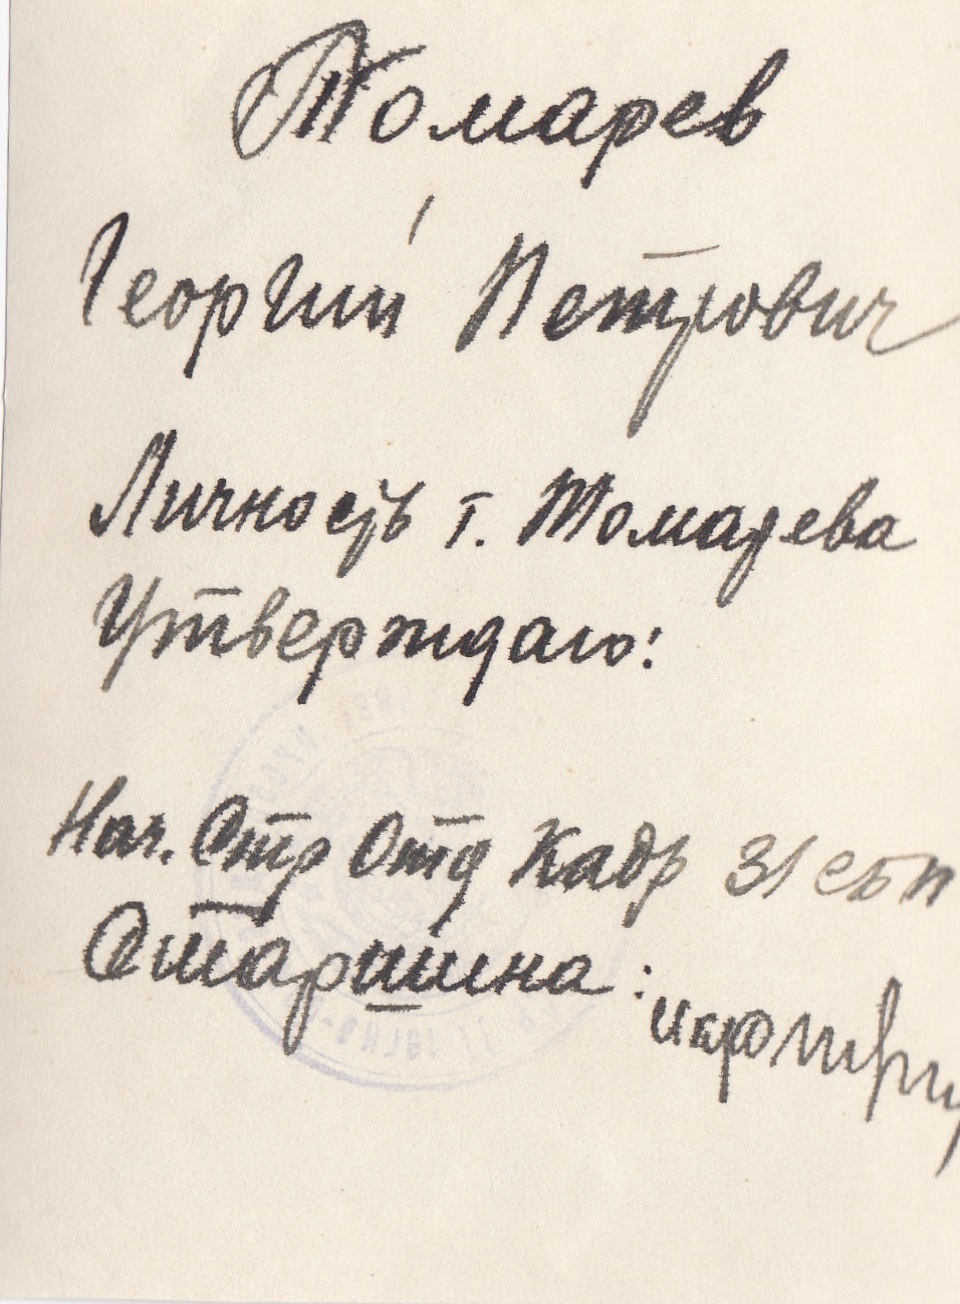 Томарев
Георгий Петрович
Личность т. Томарева
Утверждаю:
Нач. Стр Отд Кадр 31 сбп
Старшина: